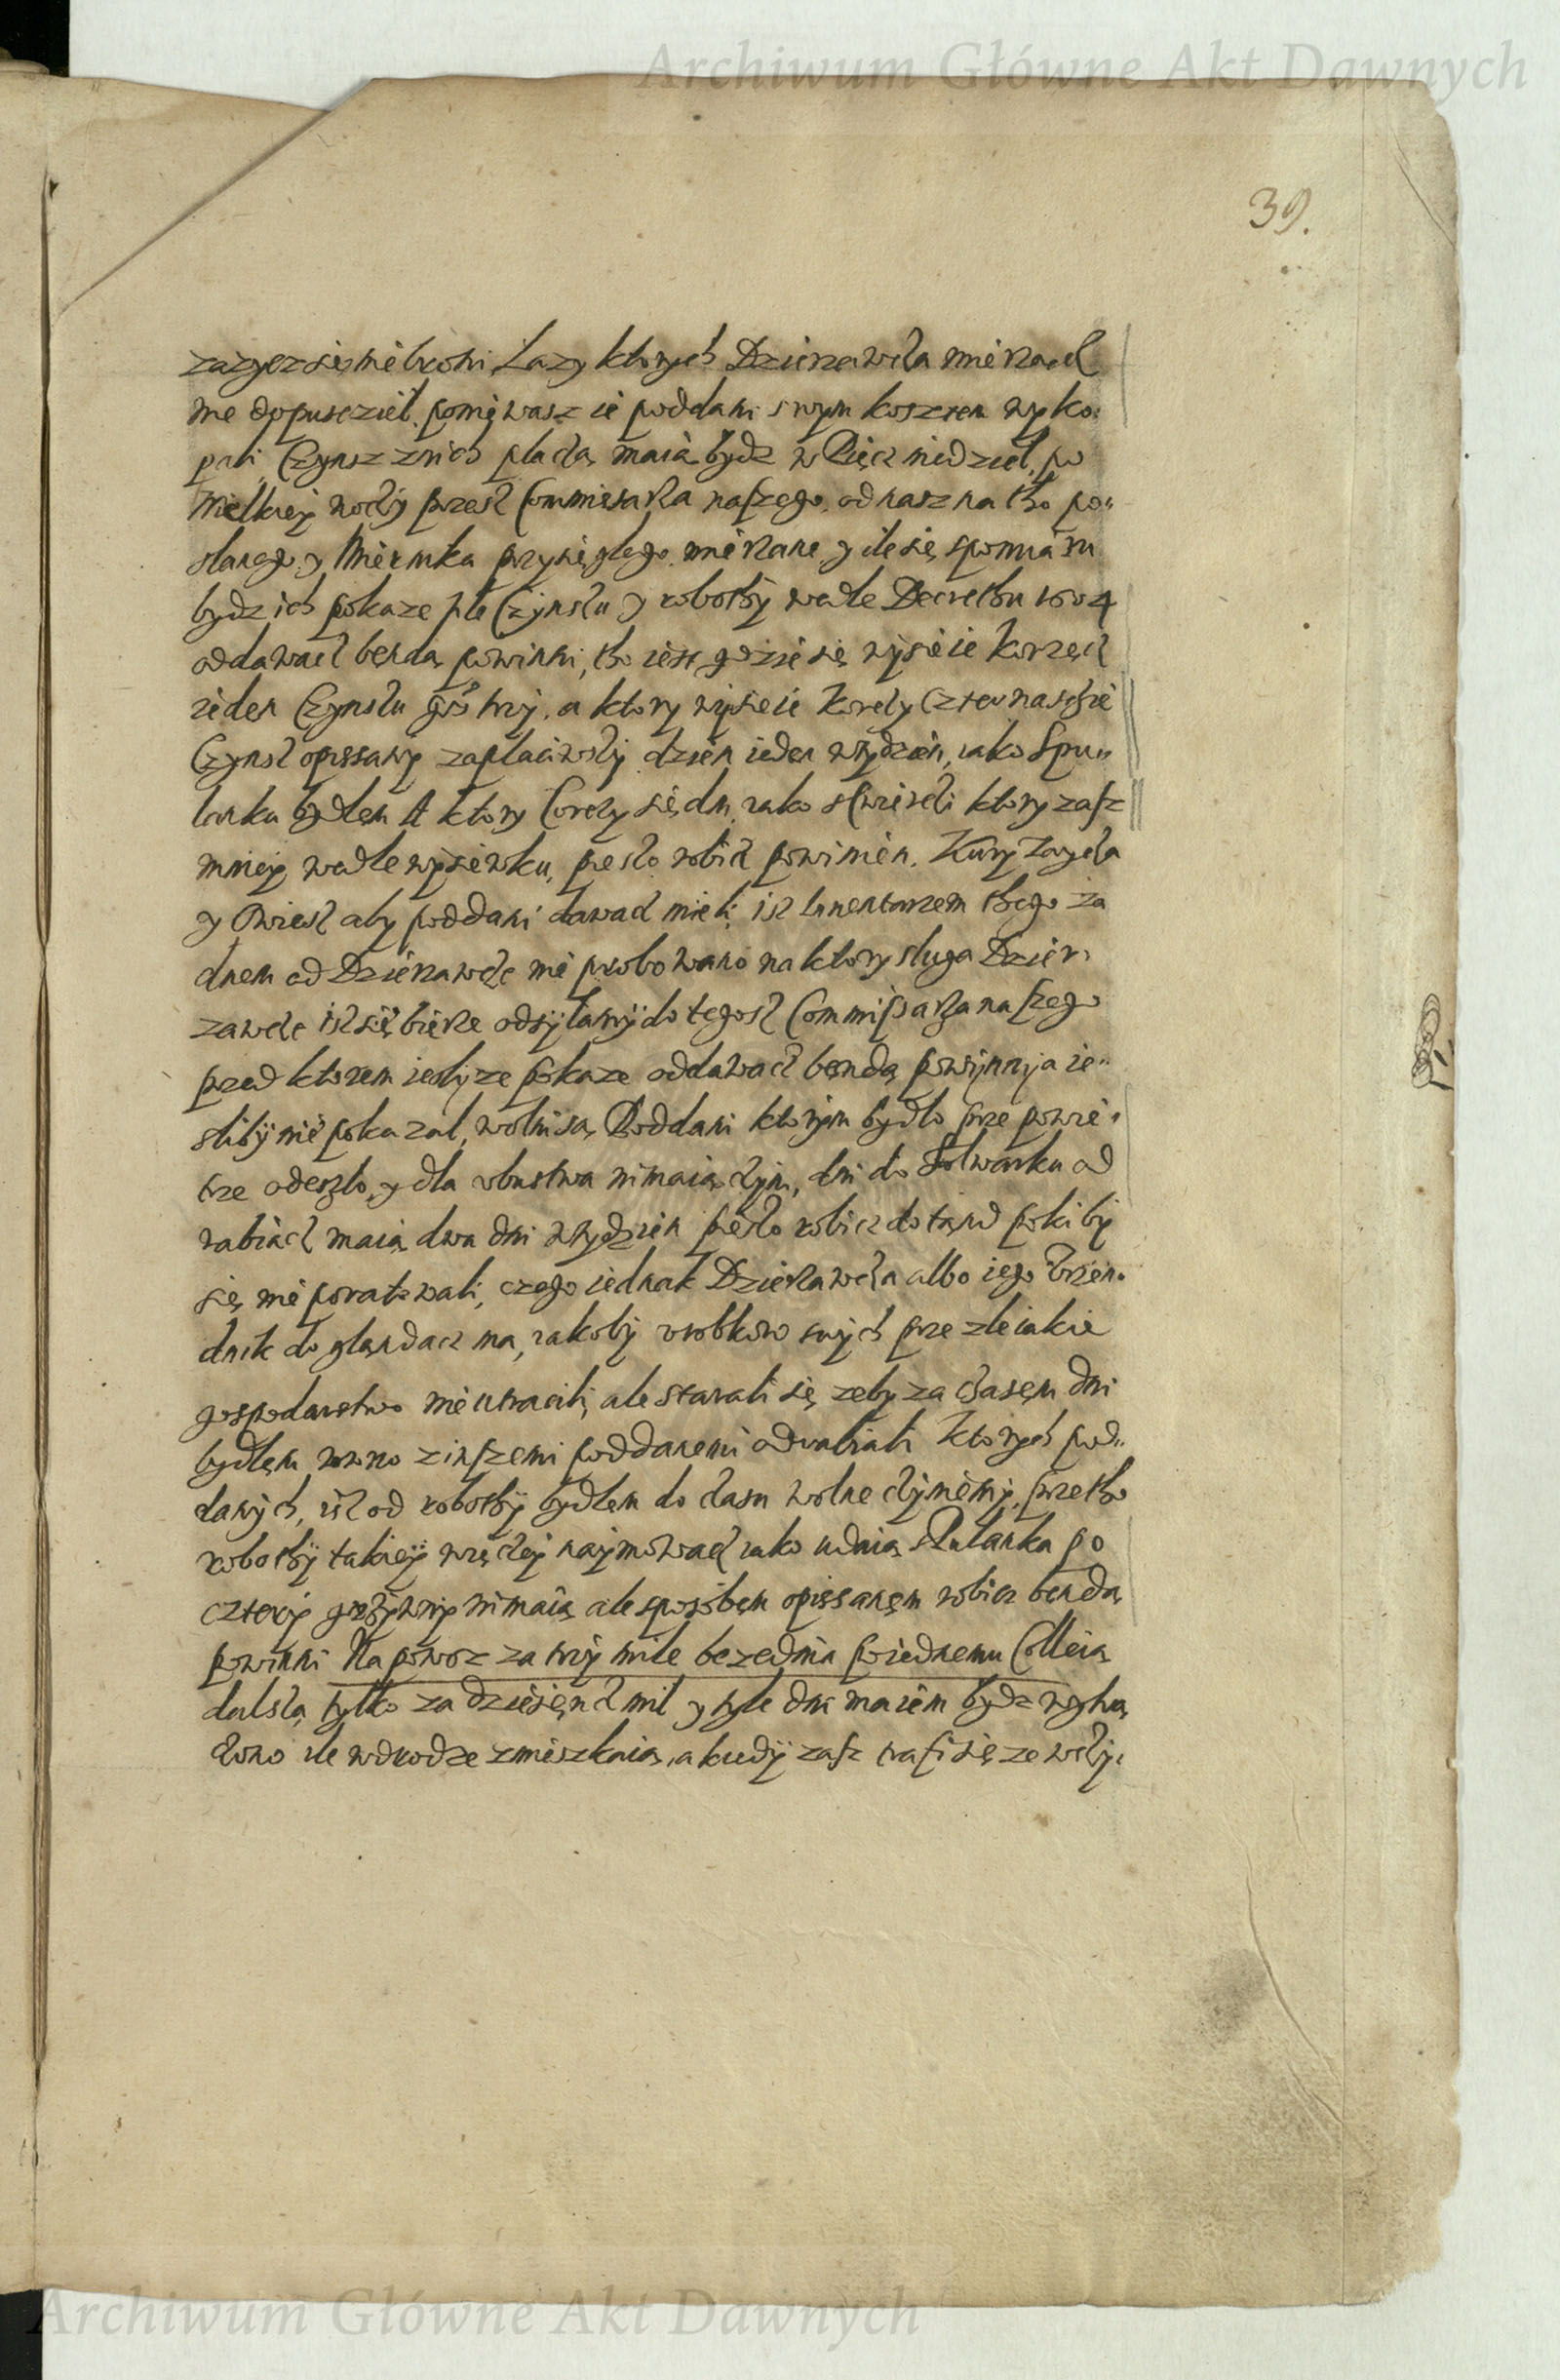 Archiwum Główne Akt Dawnych
39.
zazyczsię nie broni, Łazy ktorych Dzierzawcza mierzacz
nie dopusczieł. poniewasz ie poddani swym kosztem wyko:
pali Czynsz znich płaczą maią bydz w Pięcz niedziel, po
Wielkiey noczy przesz Commissarza naszego. od nasz na tho po„
slanego, y Miernika przysięglego mierzane, y ile się spomiaru
bydz ich pokaze tyle Czynszu y robothy wedle Decrethu 1604
oddawacz bendą powinni, tho iest gdzie się wysieie Korzecz
ieden Czynszu gros trzy. a ktory wysieie Korczy czternasczie
Czynsz opissany zaplaciwszy dzien ieden wtydzien, iako Spu„
lanku bydłem A ktory Corczy siedm, iako sCwierczi ktory zasz
mniey wedle wysiewku, pieszo robicz powinien. Kury Jaycza
y Owiesz aby poddani dawacz mieli, isz Inwentarzem thego ża
dnem od Dzierzawcze nie probowano na ktory sługa Dzier,
zawcze isz się bierze odsyłamy do tegosz Commissarza naszego
przed ktorem iesly ze pokaze oddawacz bendą powinny a ie„
sliby nie pokazal, wolni są. Poddani ktorym bydło prze powie„
trze odeszło, y dla vbustwa nimaią czym, dni do Folwarku od
rabiacz maią dwa dni wtydzien pieszo robicz dotąnd pokiby
się nie poratowali, czego iednak Dzierzawcza albo iego Vrzen„
dnik do glandacz ma, iakoby vrobkow swych prze zleiakie
gospodarstwo nie utracili, ale starali się zeby za czasem dni
bydłem rowno zinszemi poddanemi odrabiali Ktorych pod„
danych, isz od robothy bydłem do czasu wolne czyniemy, przetho
robothy takiey więczey naymowacz iako udnia sPulanku po
cztery grzywny nimaią ale sposobem opissanem robicz bendą
powinni Na powoz za trzy mile bezednia poiednemu Colleią
dalszą tylko za dziesięncz mil y tyle dni maiem bydz wythrą
czono ile wdrodze zmieszkaią, a kiedy zasz trafi się ze wszy„
Archiwum Główne Akt Dawnych